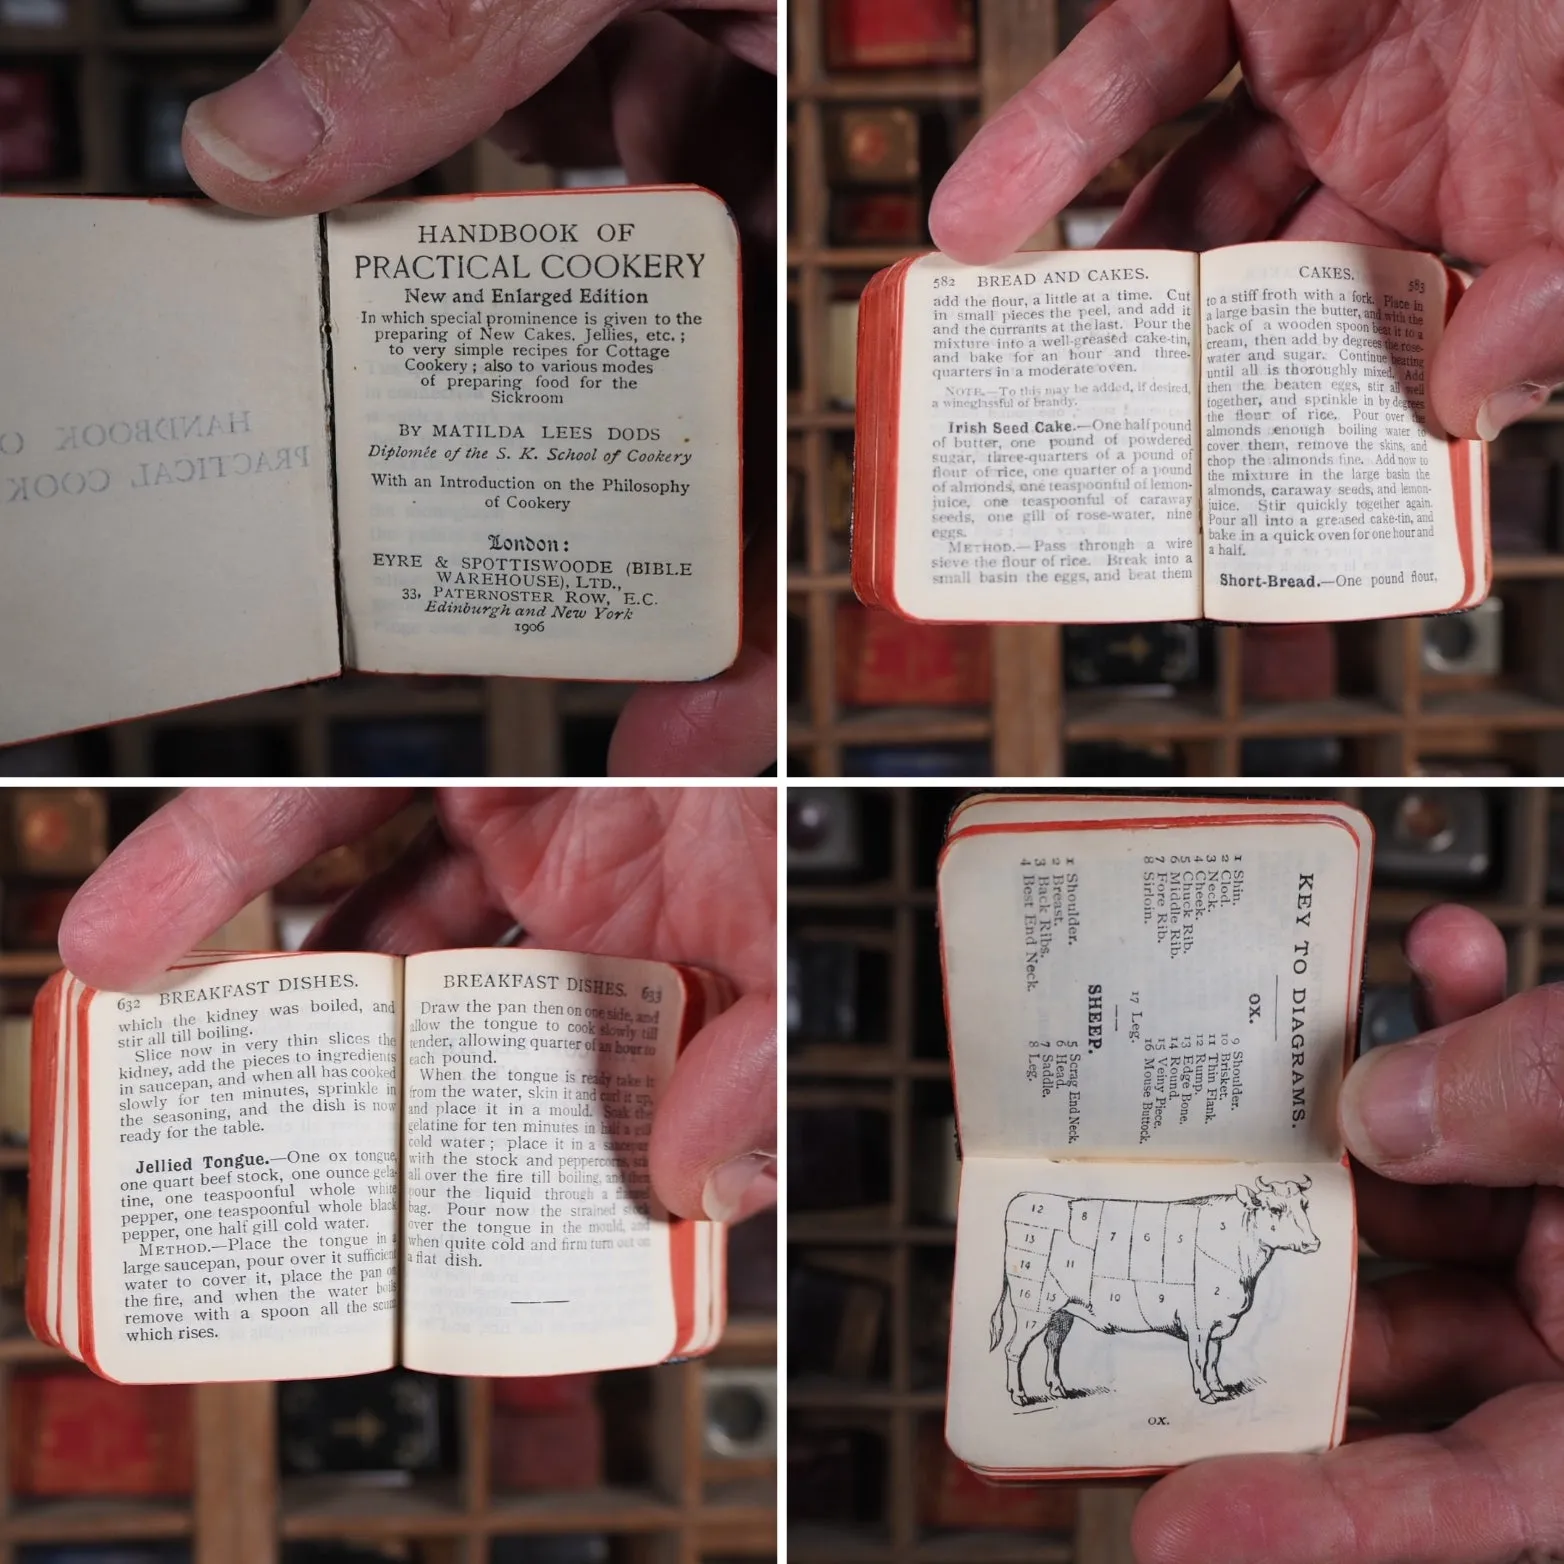 HANDBOOK OF
PRACTICAL COOKERY
New and Enlarged Edition
In which special prominence is given to the
preparing of New Cakes, Jellies, etc.;
to very simple recipes for Cottage
Cookery; also to various modes
of preparing food for the
Sickroom
BY MATILDA LEES DODS
Diplomée of the S. K. School of Cookery
With an Introduction on the Philosophy
of Cookery
London:
EYRE & SPOTTISWOODE (BIBLE
WAREHOUSE), LTD.,
33, PATERNOSTER ROW, E.C.
Edinburgh and New York
1906
HANDBOOK O
PRACTICAL COOK
582 BREAD AND CAKES.
add the flour, a little at a time. Cut
in small pieces the peel, and add it
and the currants at the last. Pour the
mixture into a well-greased cake-tin,
and bake for an hour and three-
quarters in a moderate oven.
NOTE.—To this may be added, if desired,
a wineglassful of brandy.
Irish Seed Cake.—One half pound
of butter, one pound of powdered
sugar, three-quarters of a pound of
flour of rice, one quarter of a pound
of almonds, one teaspoonful of lemon-
juice, one teaspoonful of caraway
seeds, one gill of rose-water, nine
eggs.
METHOD.—Pass through a wire
sieve the flour of rice. Break into a
small basin the eggs, and beat them
CAKES. 583
to a stiff froth with a fork. Place in
a large basin the butter, and with the
back of a wooden spoon beat it to a
cream, then add by degrees the rose-
water and sugar. Continue beating
until all is thoroughly mixed. Add
then the beaten eggs, stir all well
together, and sprinkle in by degrees
the flour of rice. Pour over the
almonds enough boiling water to
cover them, remove the skins, and
chop the almonds fine. Add now to
the mixture in the large basin the
almonds, caraway seeds, and lemon-
juice. Stir quickly together again.
Pour all into a greased cake-tin, and
bake in a quick oven for one hour and
a half.
Short-Bread.—One pound flour,
632 BREAKFAST DISHES.
which the kidney was boiled, and
stir all till boiling.
Slice now in very thin slices the
kidney, add the pieces to ingredients
in saucepan, and when all has cooked
slowly for ten minutes, sprinkle in
the seasoning, and the dish is now
ready for the table.
Jellied Tongue.—One ox tongue,
one quart beef stock, one ounce gela-
tine, one teaspoonful whole white
pepper, one teaspoonful whole black
pepper, one half gill cold water.
METHOD.—Place the tongue in a
large saucepan, pour over it sufficient
water to cover it, place the pan on
the fire, and when the water boils
remove with a spoon all the scum
which rises.
BREAKFAST DISHES. 633
Draw the pan then on one side, and
allow the tongue to cook slowly till
tender, allowing quarter of an hour to
each pound.
When the tongue is ready take it
from the water, skin it and curl it up,
and place it in a mould. Soak the
gelatine for ten minutes in half a gill
cold water; place it in a saucepan
with the stock and peppercorns, stir
all over the fire till boiling, and then
pour the liquid through a flannel
bag. Pour now the strained stock
over the tongue in the mould, and
when quite cold and firm turn out on
a flat dish.
KEY TO DIAGRAMS.
OX.
1 Shin.
2 Clod.
3 Neck.
4 Cheek.
5 Chuck Rib.
6 Middle Rib.
7 Fore Rib.
8 Sirloin.
9 Shoulder.
10 Brisket.
11 Thin Flank.
12 Rump.
13 Edge Bone.
14 Round.
15 Veiny Piece.
16 Mouse Buttock.
17 Leg.
SHEEP.
1 Shoulder.
2 Breast.
3 Back Ribs.
4 Best End Neck.
5 Scrag End Neck.
6 Head.
7 Saddle.
8 Leg.
12 8 7 6 5 3 4
13 11
14
16 15 10 9 2
17 1
OX.